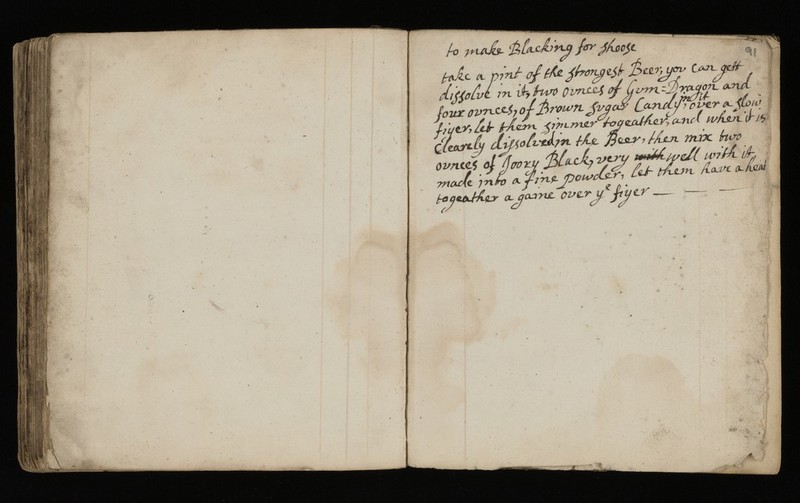 91
to make Blacking for shoose
take a pint of the strongest Beer, you can gett
dissolve in it, two ounces of Gum=Dragon and
four ounces, of Brown sugar Candy, in it over a slow
fiyer, let them simmer togeather, and when it is
Clearely dissolved in the Beer, then mix two
ounces of Jvory Black, very with well with it
made into a fine powder, let them have a heat
togeather a game over yͤ fiyer — — —